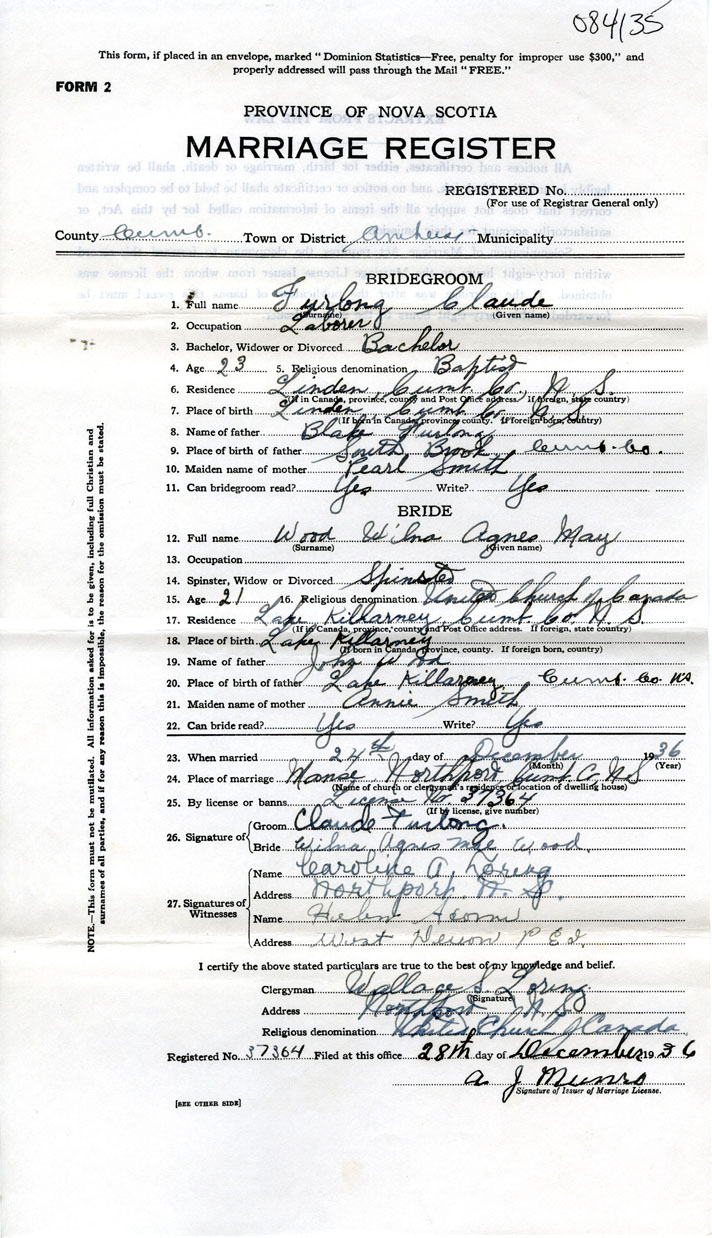 084135
This form, if placed in an envelope, marked "Dominion Statistics—Free, penalty for improper use $300," and
properly addressed will pass through the Mail "FREE."
FORM 2
PROVINCE OF NOVA SCOTIA
MARRIAGE REGISTER
REGISTERED No.
(For use of Registrar General only)
County Cumb. Town or District Amherst Municipality
BRIDEGROOM
1. Full name Furlong Claude
(Surname) (Given name)
2. Occupation Laborer
3. Bachelor, Widower or Divorced Bachelor
4. Age 23 5. Religious denomination Baptist
6. Residence Linden, Cumb. Co., N. S.
(If in Canada, province, county and Post Office address. If foreign, state country)
7. Place of birth Linden, Cumb. Co. N. S.
(If born in Canada, province, county. If foreign born, country)
8. Name of father Blake Furlong
9. Place of birth of father South Brook Cumb. Co.
10. Maiden name of mother Pearl Smith
11. Can bridegroom read? Yes Write? Yes
BRIDE
12. Full name Wood Wilna Agnes May
(Surname) (Given name)
13. Occupation
14. Spinster, Widow or Divorced Spinster
15. Age 21 16. Religious denomination United Church of Canada
17. Residence Lake Killarney, Cumb. Co. N. S.
(If in Canada, province, county and Post Office address. If foreign, state country)
18. Place of birth Lake Killarney
(If born in Canada, province, county. If foreign born, country)
19. Name of father John Wood
20. Place of birth of father Lake Killarney, Cumb. Co. N.S.
21. Maiden name of mother Annie Smith
22. Can bride read? Yes Write? Yes
23. When married 24th day of December 1936
(Month) (Year)
24. Place of marriage Manse, Northport, Cumb. Co, N.S
(Name of church or clergyman's residence or location of dwelling house)
25. By license or banns License No. 37364
(If by license, give number)
26. Signature of
Groom Claude Furlong.
Bride Wilna Agnes Mae Wood.
27. Signatures of Witnesses
Name Caroline A. Loring
Address Northport, N. S.
Name Helen
Address West Devon P E I.
I certify the above stated particulars are true to the best of my knowledge and belief.
Clergyman Wallace S. Loring
(Signature)
Address Northport N. S.
Religious denomination United Church of Canada
Registered No. 37364 Filed at this office 28th day of December 1936
A. J. Munro
Signature of Issuer of Marriage License.
[SEE OTHER SIDE]
NOTE.—This form must not be mutilated. All information asked for is to be given, including full Christian and
surnames of all parties, and if for any reason this is impossible, the reason for the omission must be stated.